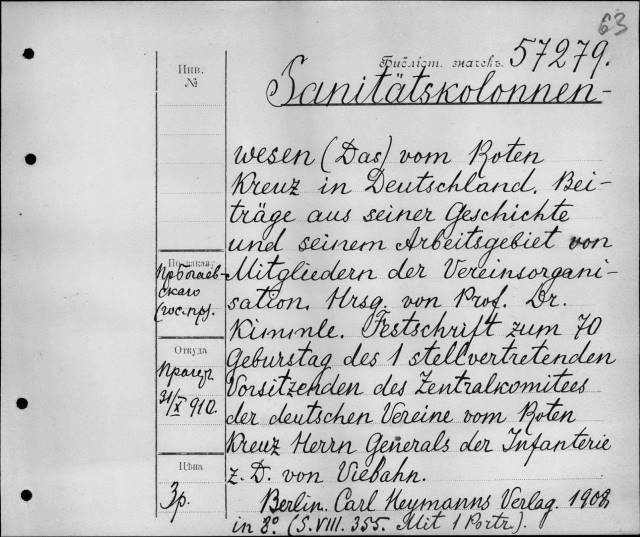 63
Библіот. значекъ. 57279.
Инв.
№
Sanitätskolonnen-
wesen (Das) vom Roten
Kreuz in Deutschland. Bei-
träge aus seiner Geschichte
und seinem Arbeitsgebiet von
Mitgliedern der Vereinsorgani-
sation. Hrsg. von Prof. Dr.
Kimmle. Festschrift zum 70
Geburstag des 1 stellvertretenden
Vorsitzenden des Zentralkomitees
der deutschen Vereine vom Roten
Kreuz Herrn Generals der Infanterie
z. D. von Viebahn.
Berlin. Carl Heymanns Verlag. 1908
in 8° (S. VIII. 355. Mit 1 Portr.).
По заказу
скаго
Откуда
31/X 910.
Цѣна
3р.